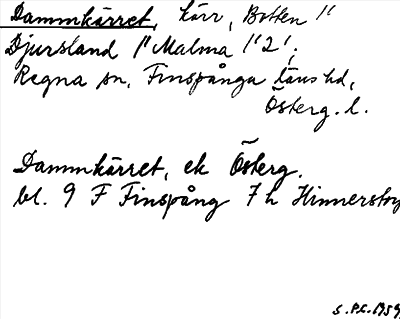 Dammkärret, kärr, Botten 1"
Djursland 1" Malma 1"2',
Regna sn, Finspånga läns hd,
Österg. l.
Dammkärret, ek Österg.
bl. 9 F Finspång 7 h Hinnerstorp
S. P.L. 1959